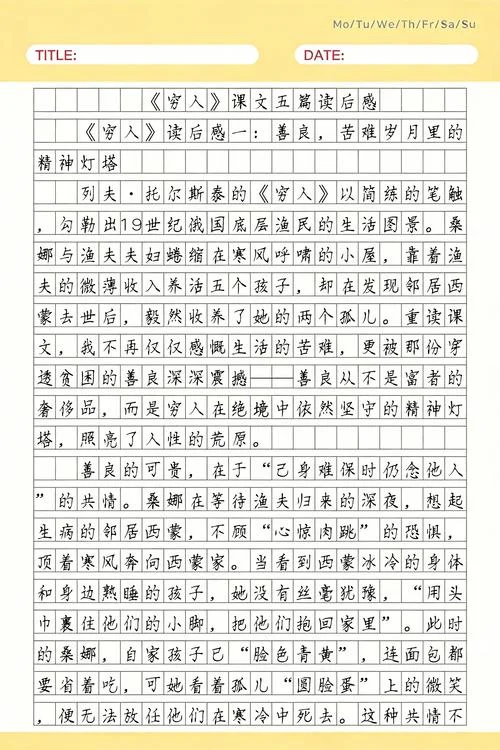 Mo/Tu/We/Th/Fr/Sa/Su
TITLE: DATE:
《穷人》课文五篇读后感
《穷人》读后感一：善良，苦难岁月里的
精神灯塔
列夫·托尔斯泰的《穷人》以简练的笔触
，勾勒出19世纪俄国底层渔民的生活图景。桑
娜与渔夫夫妇蜷缩在寒风呼啸的小屋，靠着渔
夫的微薄收入养活五个孩子，却在发现邻居西
蒙去世后，毅然收养了她的两个孤儿。重读课
文，我不再仅仅感慨生活的苦难，更被那份穿
透贫困的善良深深震撼——善良从不是富者的
奢侈品，而是穷人在绝境中依然坚守的精神灯
塔，照亮了人性的荒原。
善良的可贵，在于“己身难保时仍念他人
”的共情。桑娜在等待渔夫归来的深夜，想起
生病的邻居西蒙，不顾“心惊肉跳”的恐惧，
顶着寒风奔向西蒙家。当看到西蒙冰冷的身体
和身边熟睡的孩子，她没有丝毫犹豫，“用头
巾裹住他们的小脚，把他们抱回家里”。此时
的桑娜，自家孩子已“脸色青黄”，连面包都
要省着吃，可她看着孤儿“圆脸蛋”上的微笑
，便无法放任他们在寒冷中死去。这种共情不